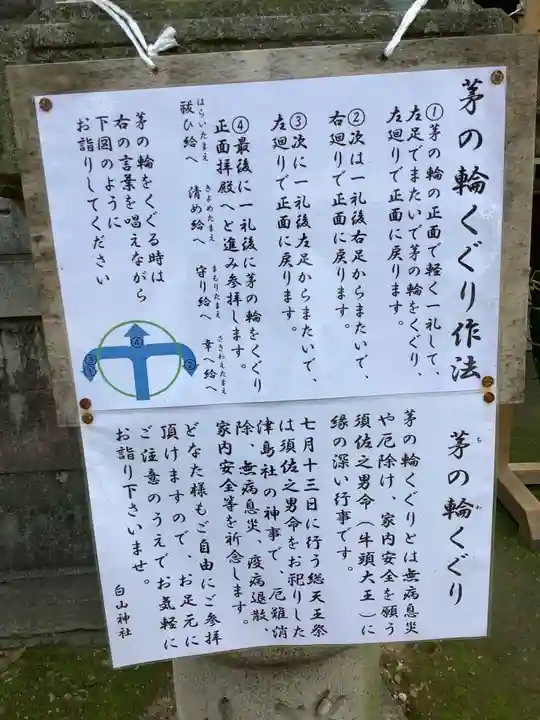 茅の輪くぐり作法
①茅の輪の正面で軽く一礼して、
左足でまたいで茅の輪をくぐり、
左廻りで正面に戻ります。
②次は一礼後右足からまたいで、
右廻りで正面に戻ります。
③次に一礼後左足からまたいで、
左廻りで正面に戻ります。
④最後に一礼後に茅の輪をくぐり
正面拝殿へと進み参拝します。
はらいたまえ きよめたまえ まもりたまえ さきわえたまえ
祓ひ給へ 清め給へ 守り給へ 幸へ給へ
茅の輪をくぐる時は
右の言葉を唱えながら
下図のように
お詣りしてください
④
③
①
②
ち わ
茅の輪くぐり
茅の輪くぐりとは無病息災
や厄除け、家内安全を願う
須佐之男命（牛頭大王）に
縁の深い行事です。
七月十三日に行う総天王祭
は須佐之男命をお祀りした
津島社の神事で、厄難消
除、無病息災、疫病退散、
家内安全等を祈念します。
どなた様もご自由にご参拝
頂けますので、お足元に
ご注意のうえでお気軽に
お詣り下さいませ。
白山神社